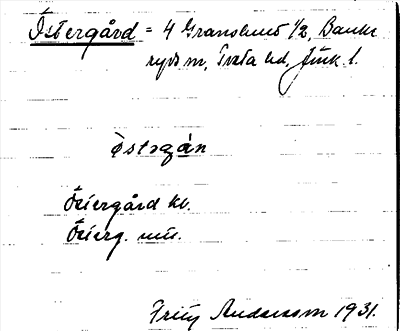 Östergård = 4 Granshult 1/2, Banke
ryds m, Tveta hd, Jönk. l.
östəgán
Östergård kv.
Österg. mtl.
Fritz Andersson 1931.